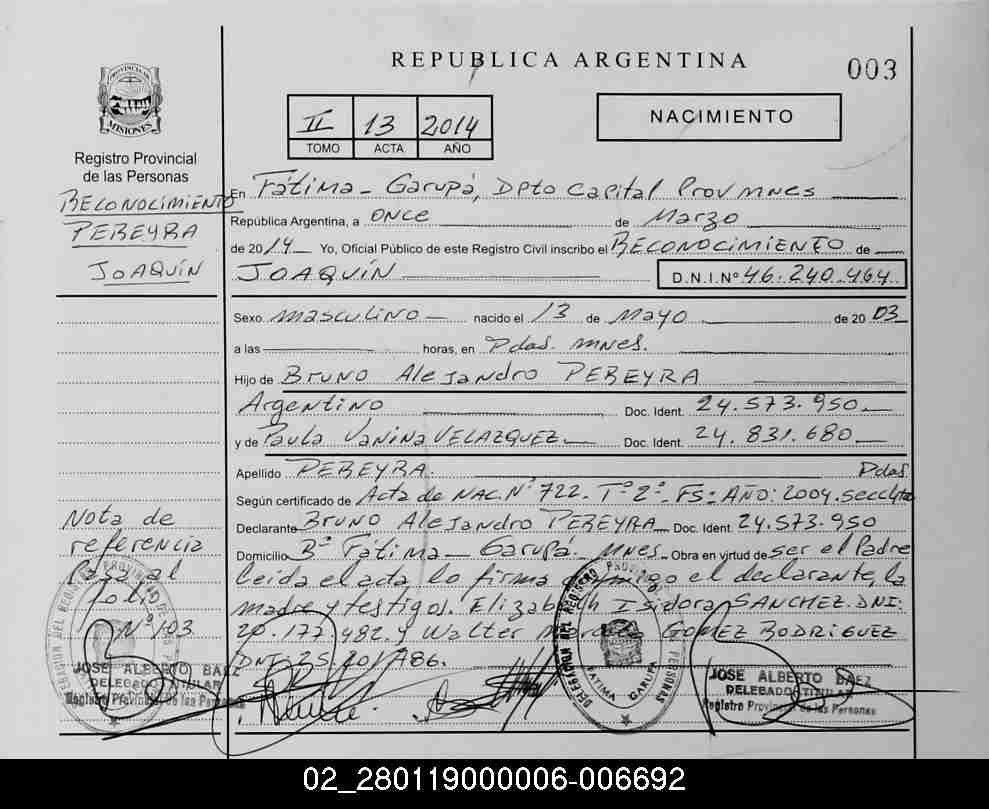 REPUBLICA ARGENTINA
003
PROVINCIA DE
MISIONES
II 13 2014
TOMO ACTA AÑO
NACIMIENTO
Registro Provincial
de las Personas
RECONOCIMIENTO
PEREYRA
JOAQUÍN
En Fátima - Garupá, Dpto Capital Prov Mnes
República Argentina, a ONCE de Marzo
de 2014 Yo, Oficial Público de este Registro Civil inscribo el RECONOCIMIENTO de
JOAQUÍN D.N.I.Nº 46.240.464
Sexo masculino nacido el 13 de Mayo de 20 03
a las horas, en Pdas. Mnes.
Hijo de Bruno Alejandro PEREYRA
Argentino Doc. Ident. 24.573.950
y de Paula Vanina VELAZQUEZ Doc. Ident. 24.831.680
Apellido PEREYRA. Pdas
Según certificado de Acta de NAC. Nº 722. Tº 2º. FS: AÑO: 2004.
Declarante Bruno Alejandro PEREYRA Doc. Ident. 24.573.950
Domicilio Bº Fátima - Garupá. Mnes. Obra en virtud de ser el Padre
leida el acta lo firma conmigo el declarante, la
madre y testigos. Elizabeth Isidora SANCHEZ. DNI:
20.177.482. y Walter GOMEZ RODRIGUEZ
DNI:
Nota de
referencia
Pasa al
Folio
Nº 103
DELEGACION DEL REGISTRO PROVINCIAL DE LAS PERSONAS
FATIMA GARUPA
JOSE ALBERTO BAEZ
DELEGADO TITULAR
Registro Provincial de las Personas
JOSE ALBERTO BAEZ
DELEGADO TITULAR
Registro Provincial de las Personas
02_280119000006-006692